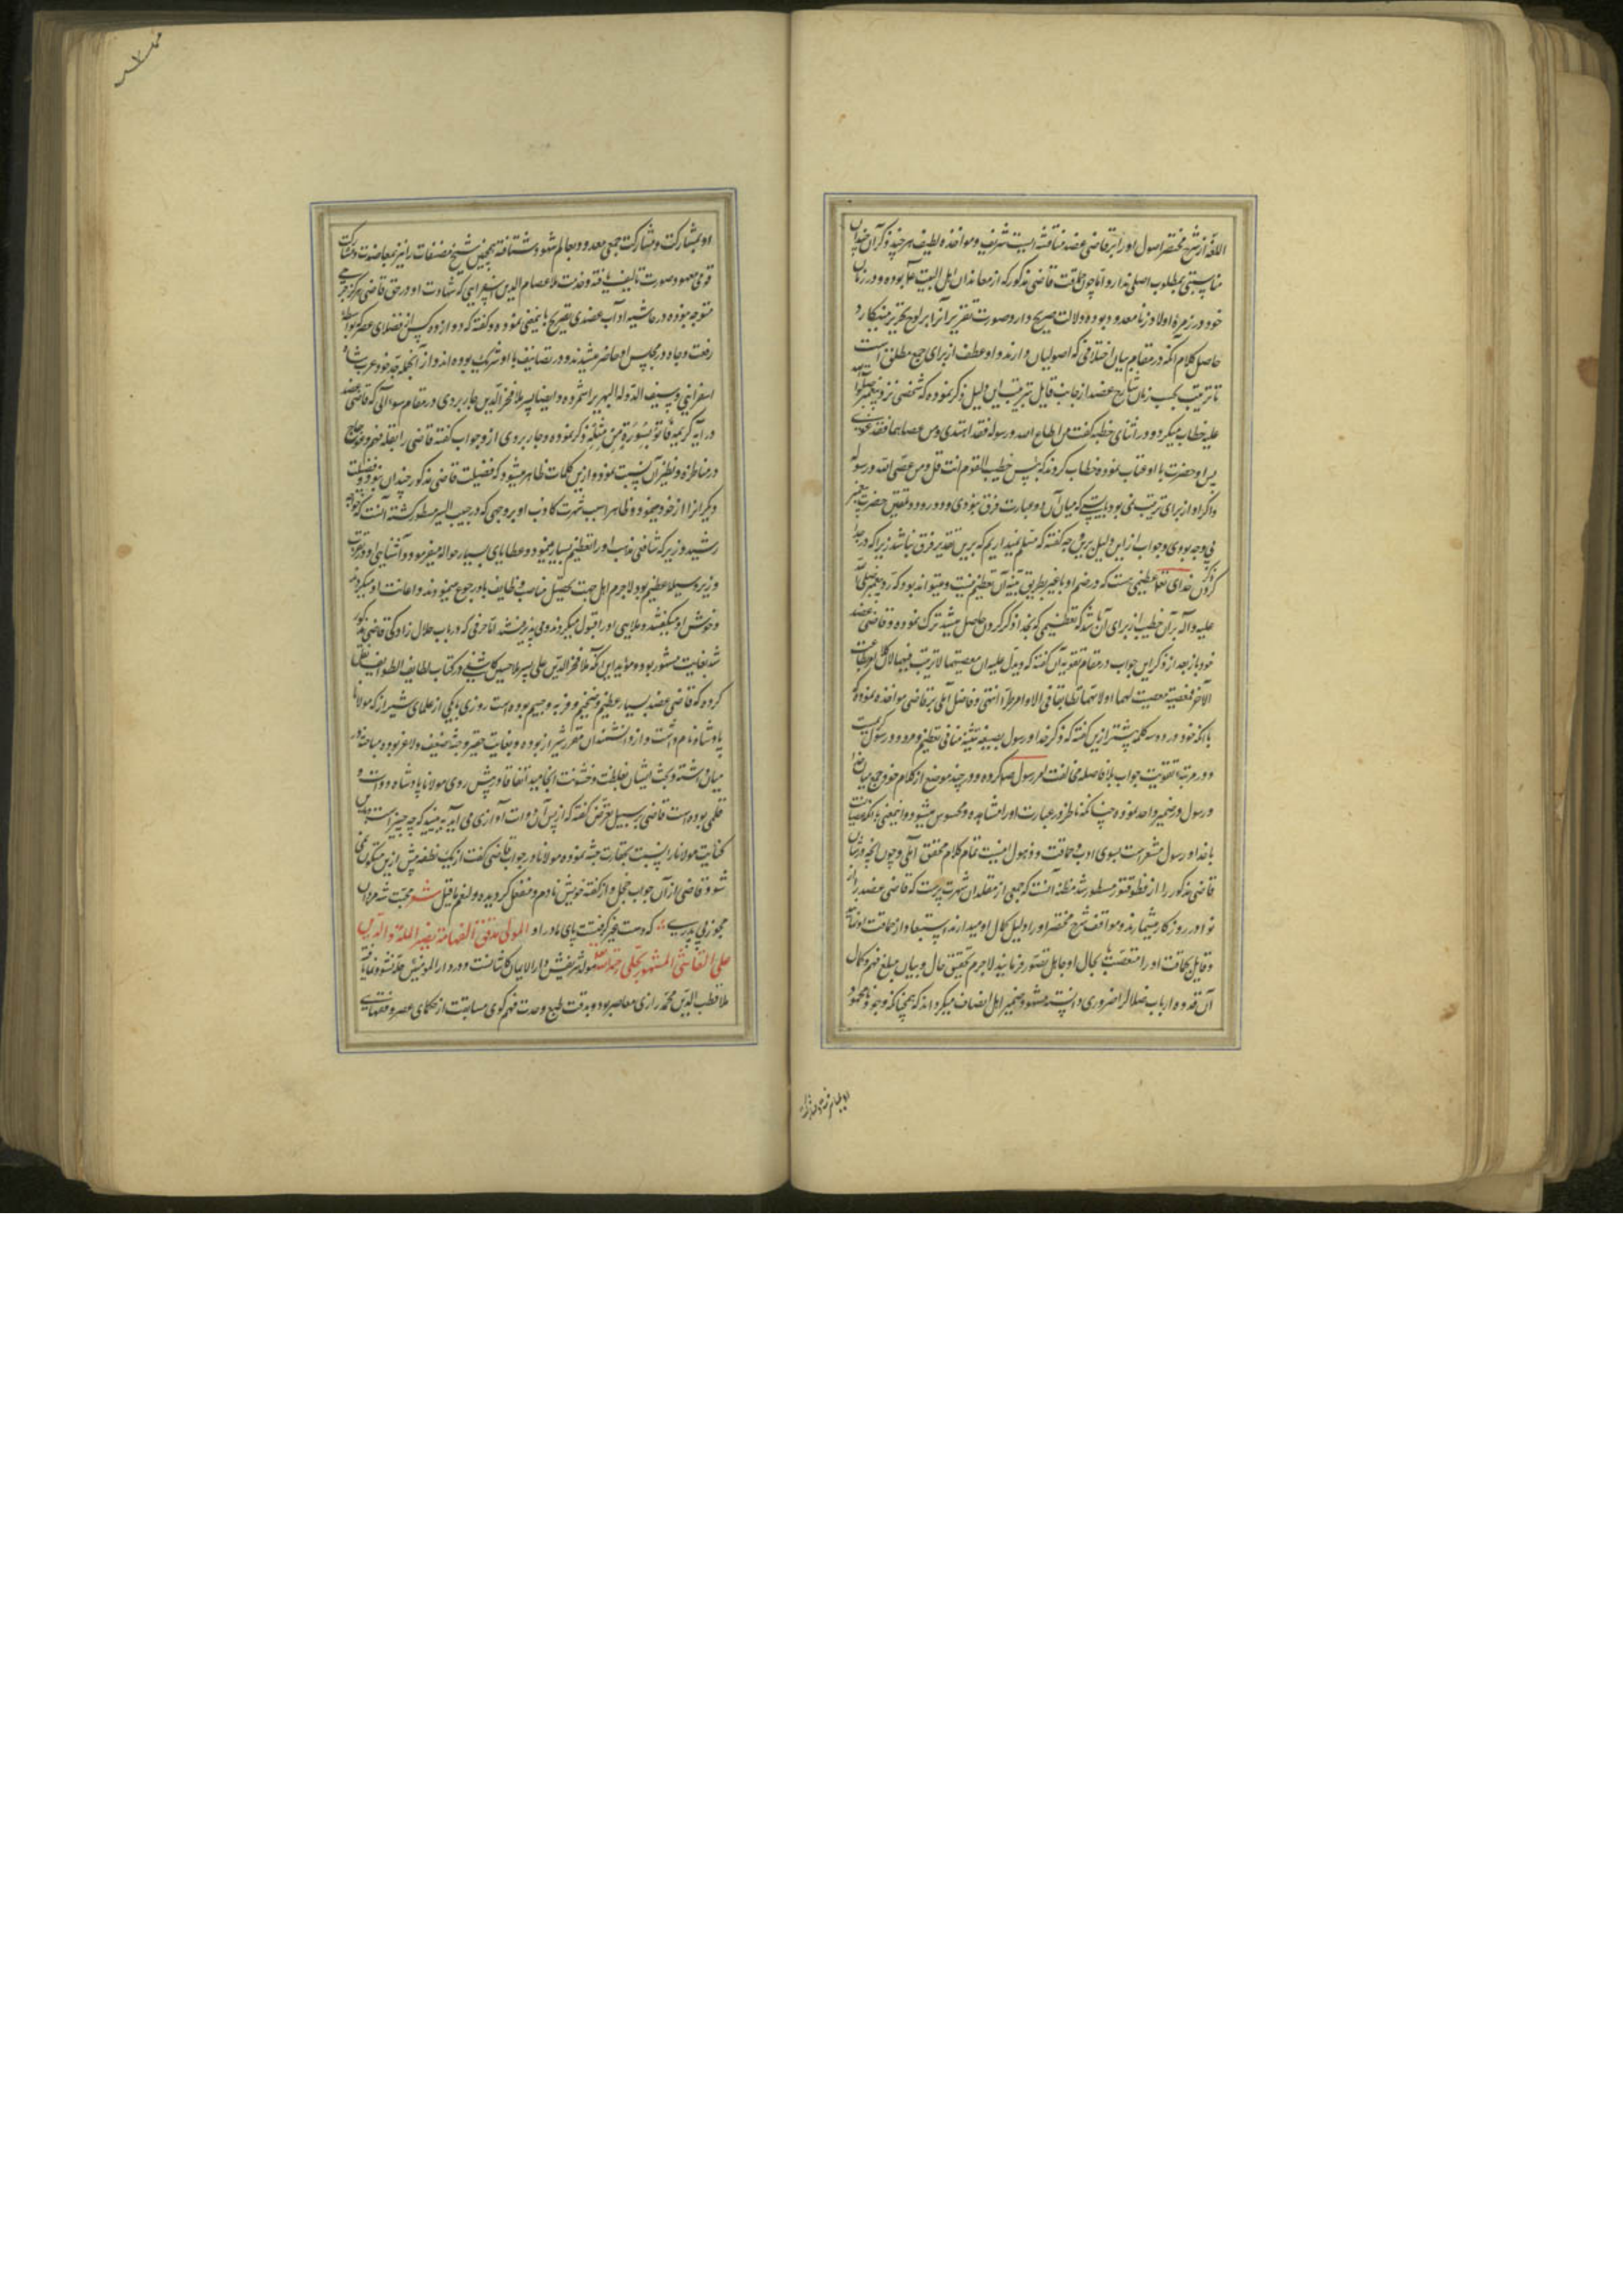 اللغة از شرح مختصر اصول او را بر قاضی عضد مناقشه ایست شریف و مواخذه لطیف هر چند ذکر آن چندان
مناسبتی بمطلوب اصلی ندارد و اما چون حماقت قاضی مذکور که از معاندان اهل البیت بوده و در زمان
خود در زمرۀ اولاد زنا معدود بوده دلالت صریح دارد صورت تقریر آنرا بر لوح تحریر مینکارد
حاصل کلام آنکه در مقام بیان اختلافی که اصولیان دارند واو عطف از برای جمع مطلق است
تا ترتیب بحسب زمان شارح عضد از جانب قایل بترتیب این دلیل ذکر نموده که شخصی نزد پیغمبر
علیه خطاب میکرد و در اثنای خطبه گفت من اطاع الله ورسوله فقد اهتدی ومن عصاهما فقد غوی
پس او حضرت با او عتاب نموده خطاب کردند که بئس خطیب القوم انت قل ومن عصی الله ورسوله
واگر واو از برای ترتیب نمی بود بایستی که میان آن دو عبارت فرق نبودی و رد و تلقین حضرت پیغمبر
بی وجه بودی وجواب از این دلیل برین وجه گفته که مسلم نمیداریم که برین تقدیر فرق نباشد زیرا که در جدا
کردن ذکر خدای تعا تعظیمی هست که در ضم او با غیر بطریق تثنیه آن تعظیم نیست و میتواند بود که رد پیغمبر
علیه وآله بر آن خطیب از برای آن باشد که تعظیمی که بجدا ذکر کردن حاصل میشد ترک نموده وقاضی عضد
خود باز بعد از ذکر این جواب در مقام تقویه آن گفته که ویدل علیه ان معصیتهما لا ترتیب فیهما لان کلا
الآخر فمعصیة معصیت لهما انتهی وفاضل آملی بر قاضی مواخذه نموده که
با آنکه خود در دو سه کلمه پیشتر ازین گفته که ذکر خدا ورسول بصیغه تثنیه منافی تعظیم
و در مرتبۀ تقویت جواب بلا فاصله مخالفت امر رسول کرده و در چند موضع از کلام خود جمع میان خدا
ورسول در ضمیر واحد نموده چنانکه ناظر در عبارت او را مشاهده ومحسوس میشود
با خدا ورسول مشعر است بسوی ادب وحماقت وذهول اینست تمام کلام محقق آملی و چون آنچه در شان
قاضی مذکور را از مسطور شد مظنه آنست که جمعی از مقلدان شهرت پرست که قاضی عضد را از
نوادر روزگار میشمارند ومواقف وشرح مختصر او را دلیل کمال او میدارند استبعاد از حماقت او نمایند
وقایل بحماقت او را متعصب یا بحال او جاهل تصور فرمایند لاجرم تحقیق حال وبیان مبلغ فهم وکمال
آن قدوه ارباب ضلال را ضروری دانسته مشهود ضمیر اهل انصاف میگرداند که همچنانکه وجود
او بمشارکت
او بمشارکت ومشارکت جمعی معدود بعالم شهود شتافته همچنین مصنفات را نیز بمعاضدت ومشارکت
قومی معهود صورت تالیف یافته وخدمت ملا عصام الدین اسفراینی که شهادت او در حق قاضی هرگز جرحی
متوجه نبوده در حاشیه آداب عضدی تصریح باین معنی نموده وگفته که دوازده کس از فضلای عصر که بواسطۀ
رفعت وجاه در مجلس او حاضر میشدند و در تصانیف با او شریک بوده اند و از آنجمله جد خود عرب شاه
اسفراینی وسیف الدوله ابهری را شمرده وایضا پسر ملا فخر الدین جاربردی در مقام سوالی که قاضی عضد
در آیه کریمه فاتوا بسورة من مثله ذکر نموده وجاربردی از و جواب گفته قاضی را بقلة فهم
در مناظره ونظیر آن نسبت نموده و از این کلمات ظاهر میشود که فضیلت قاضی مذکور چندان نبوده
دیگرانرا از خود مینموده وظاهرا سبب شهرت کاذب او بر وجهی که در حبیب السیر مسطور گشته آنست که خواجه
رشید وزیر که شافعی مذهب او را تعظیم بسیار مینمود وعطایای بسیار حواله میفرمود
وزیر وسیلۀ عظیم بود لاجرم اهل جهت تحصیل مناصب وظایف باو رجوع مینمودند و اعانت او میکردند
وخوش او میگفتند وملایی او را قبول میکردند ومی پذیرفتند اما حرفی که در باب حلال زادگی قاضی مذکور
شد بغایت مشهور بود ومؤید این آنکه ملا فخر الدین علی پسر ملا حسین کاشفی در کتاب لطایف الطوایف نقل
کرده که قاضی عضد بسیار عظیم وضخیم وفربه وجسیم بوده است روزی با یکی از علمای شیراز که مولانا
پادشاه نام داشت و از دانشمندان مقرر شیراز بوده وبغایت حقیر وجثۀ ضعیف ولاغر بوده مباحثه در
میان داشته وبحث ایشان بغلظت وخشونت انجامید اتفاقا در پیش روی مولانا پادشاه دوات و
قلمی بوده است قاضی بر سبیل تعرض گفته که از پس آن دوات آوازی می آید به بینید که چه چیز است
کنایت مولانا را نسبت بحقارت جثه نموده مولانا در جواب قاضی گفت از یک نطفه بیش ازین متکون نمی
شود قاضی از آن جواب خجل و از گفته خویش نادم ومنفعل گردیده ولنعم ما قیل شعر محبت شه مردان
مجوز بی پدری که دست غیر گرفتست پای مادر او المولی المدقق الفهامة نصیر الملة والدین
علی القاشی المشهور بحلی رحمه الله مولد شریفش دار الایمان کاشانست و در دار المؤمنین حله نشو ونما یافته
ملا قطب الدین محمد رازی معاصر بود وبدقت طبع وحدت فهم گوی مسابقت از حکمای عصر وفقهای